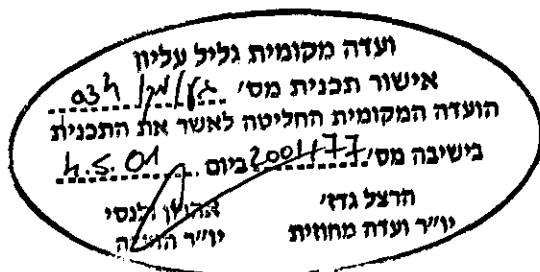 ועדה מקומית גליל עליון
אישור תכנית מס' 034
הועדה המקומית החליטה לאשר את התכנית
בישיבה מס' 2001177 ביום 4.5.01
הרצל גדז'
יו"ר ועדה מחוזית
אהרון ולנסי
יו"ר הועדה